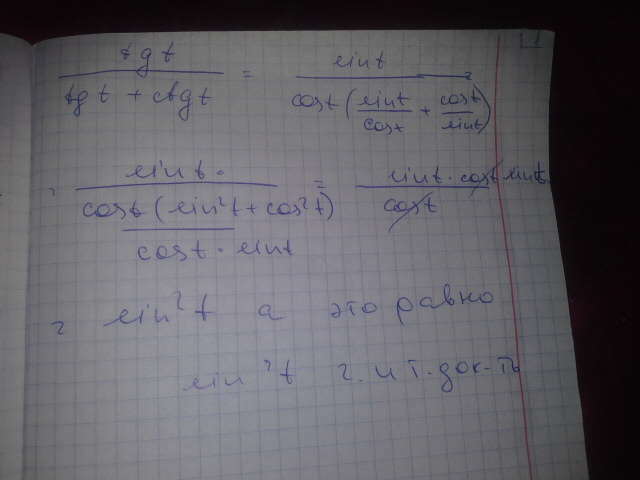 tg t / (tg t + ctg t) = sin t / (cos t (sin t / cos t + cos t / sin t))
= sin t · / (cos t (sin²t + cos²t) / (cos t · sin t)) = sin t · cos t sin t / cos t
= sin²t а это равно
sin²t ч. и т. док-ть